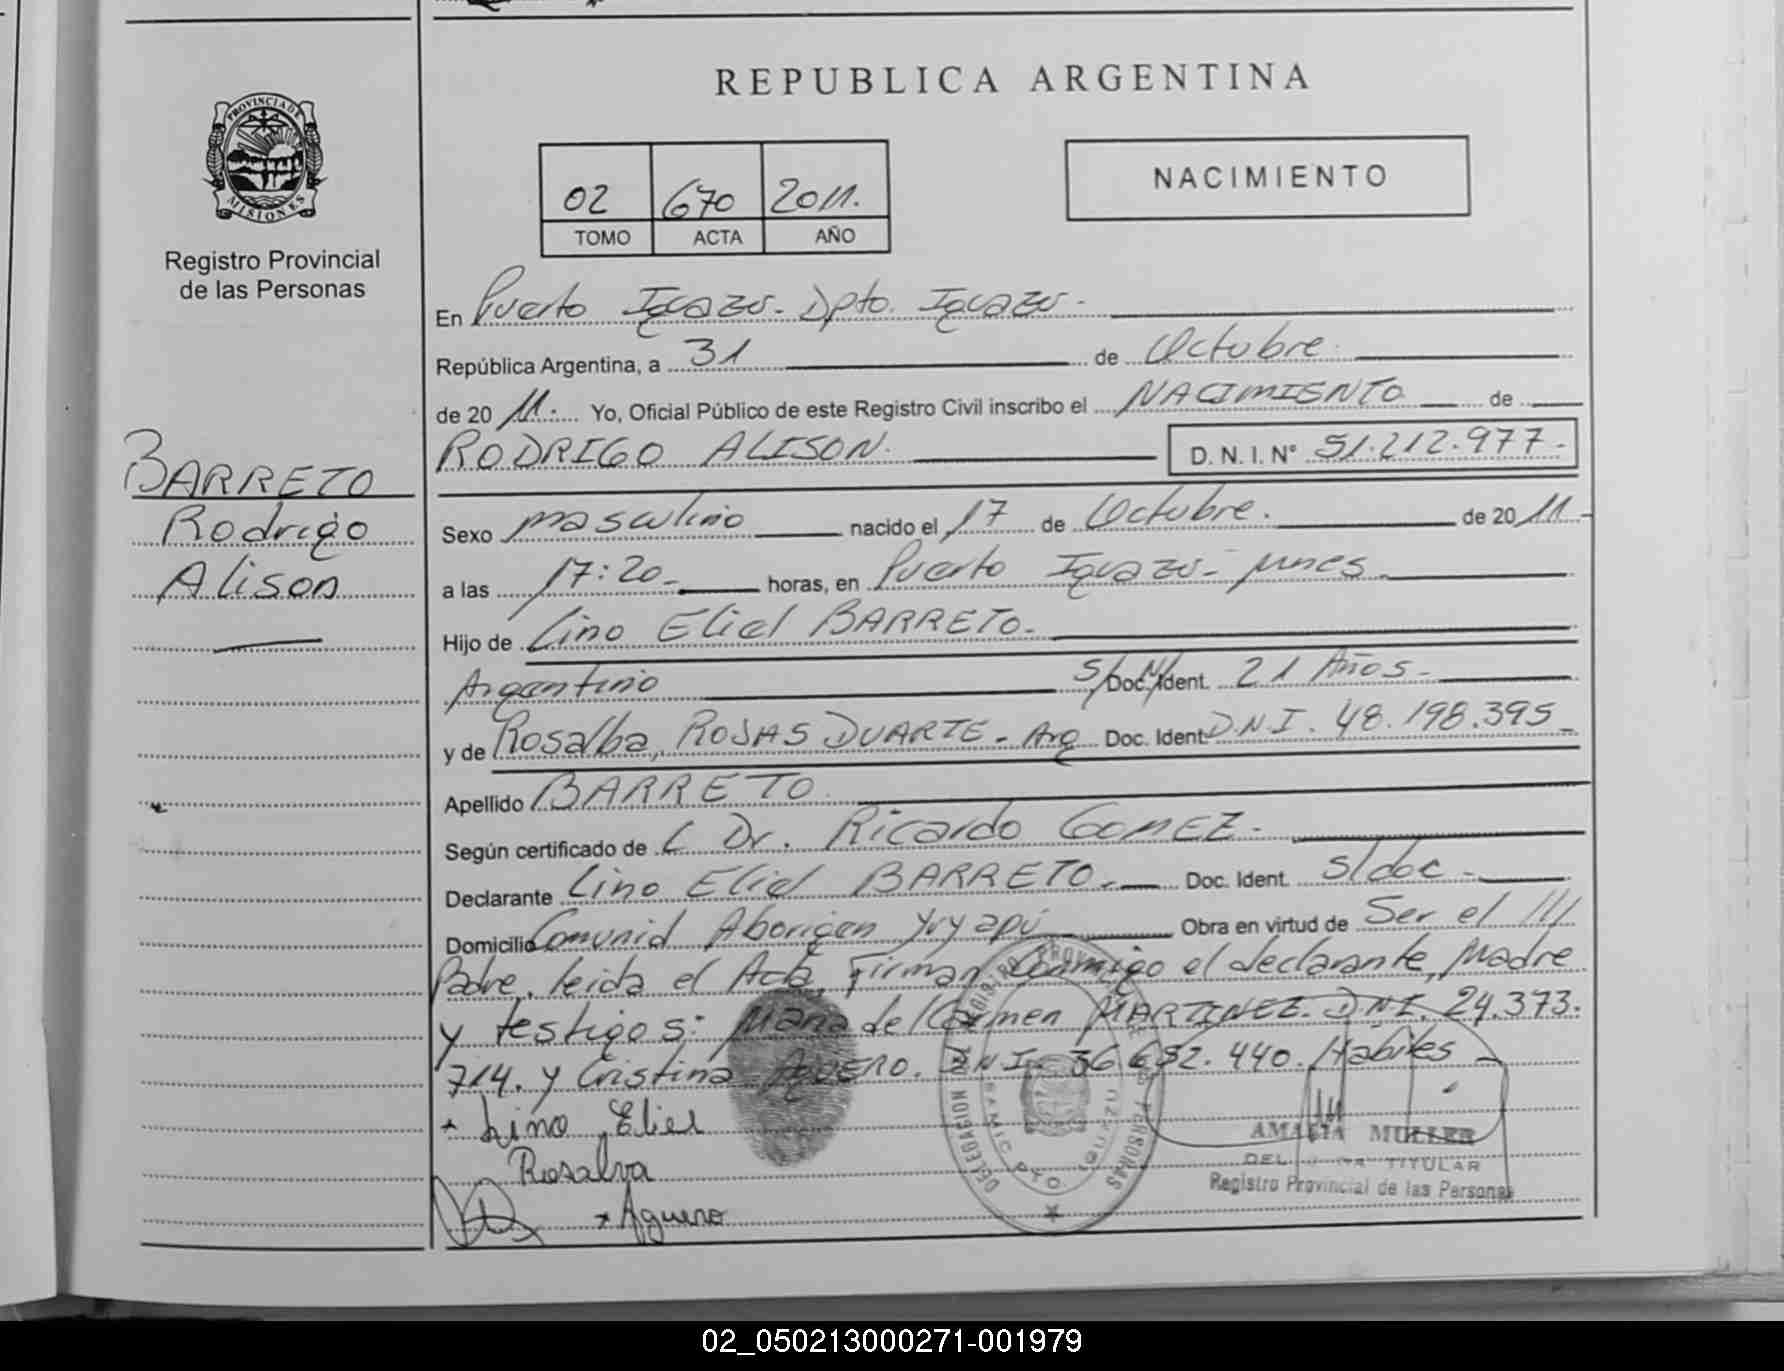 REPUBLICA ARGENTINA
PROVINCIA DE
MISIONES
Registro Provincial
de las Personas
02 670 2011.
TOMO ACTA AÑO
NACIMIENTO
En Puerto Iguazu - Dpto. Iguazu -
República Argentina, a 31 de Octubre.
de 20 11. Yo, Oficial Público de este Registro Civil inscribo el NACIMIENTO de
RODRIGO ALISON. D. N. I. Nº 51.212.977-
BARRETO
Rodrigo
Alison
Sexo masculino nacido el 17 de Octubre. de 20 11-
a las 17:20- horas, en Puerto Iguazu - mnes
Hijo de Lino Eliel BARRETO-
Argentino S/Doc. Ident. 21 Años-
y de Rosalba, ROJAS DUARTE - Arg Doc. Ident. D.N.I. 48.198.395-
Apellido BARRETO.
Según certificado de L Dr. Ricardo GOMEZ-
Declarante Lino Eliel BARRETO- Doc. Ident. s/doc-
Domicilio Comunid Aborigen Yvyapú Obra en virtud de Ser el ///
Padre, leida el Acta, Firman Conmigo el declarante, Madre
y testigos: Maria del Carmen MARTINEZ. D.N.I. 24.373.
714. y Cristina AGUERO. D.N.I. 36 432.440. Habiles -
Lino Eliel
Rosalva
Aguero
AMALIA MULLER
TITULAR
Registro Provincial de las Personas
02_050213000271-001979